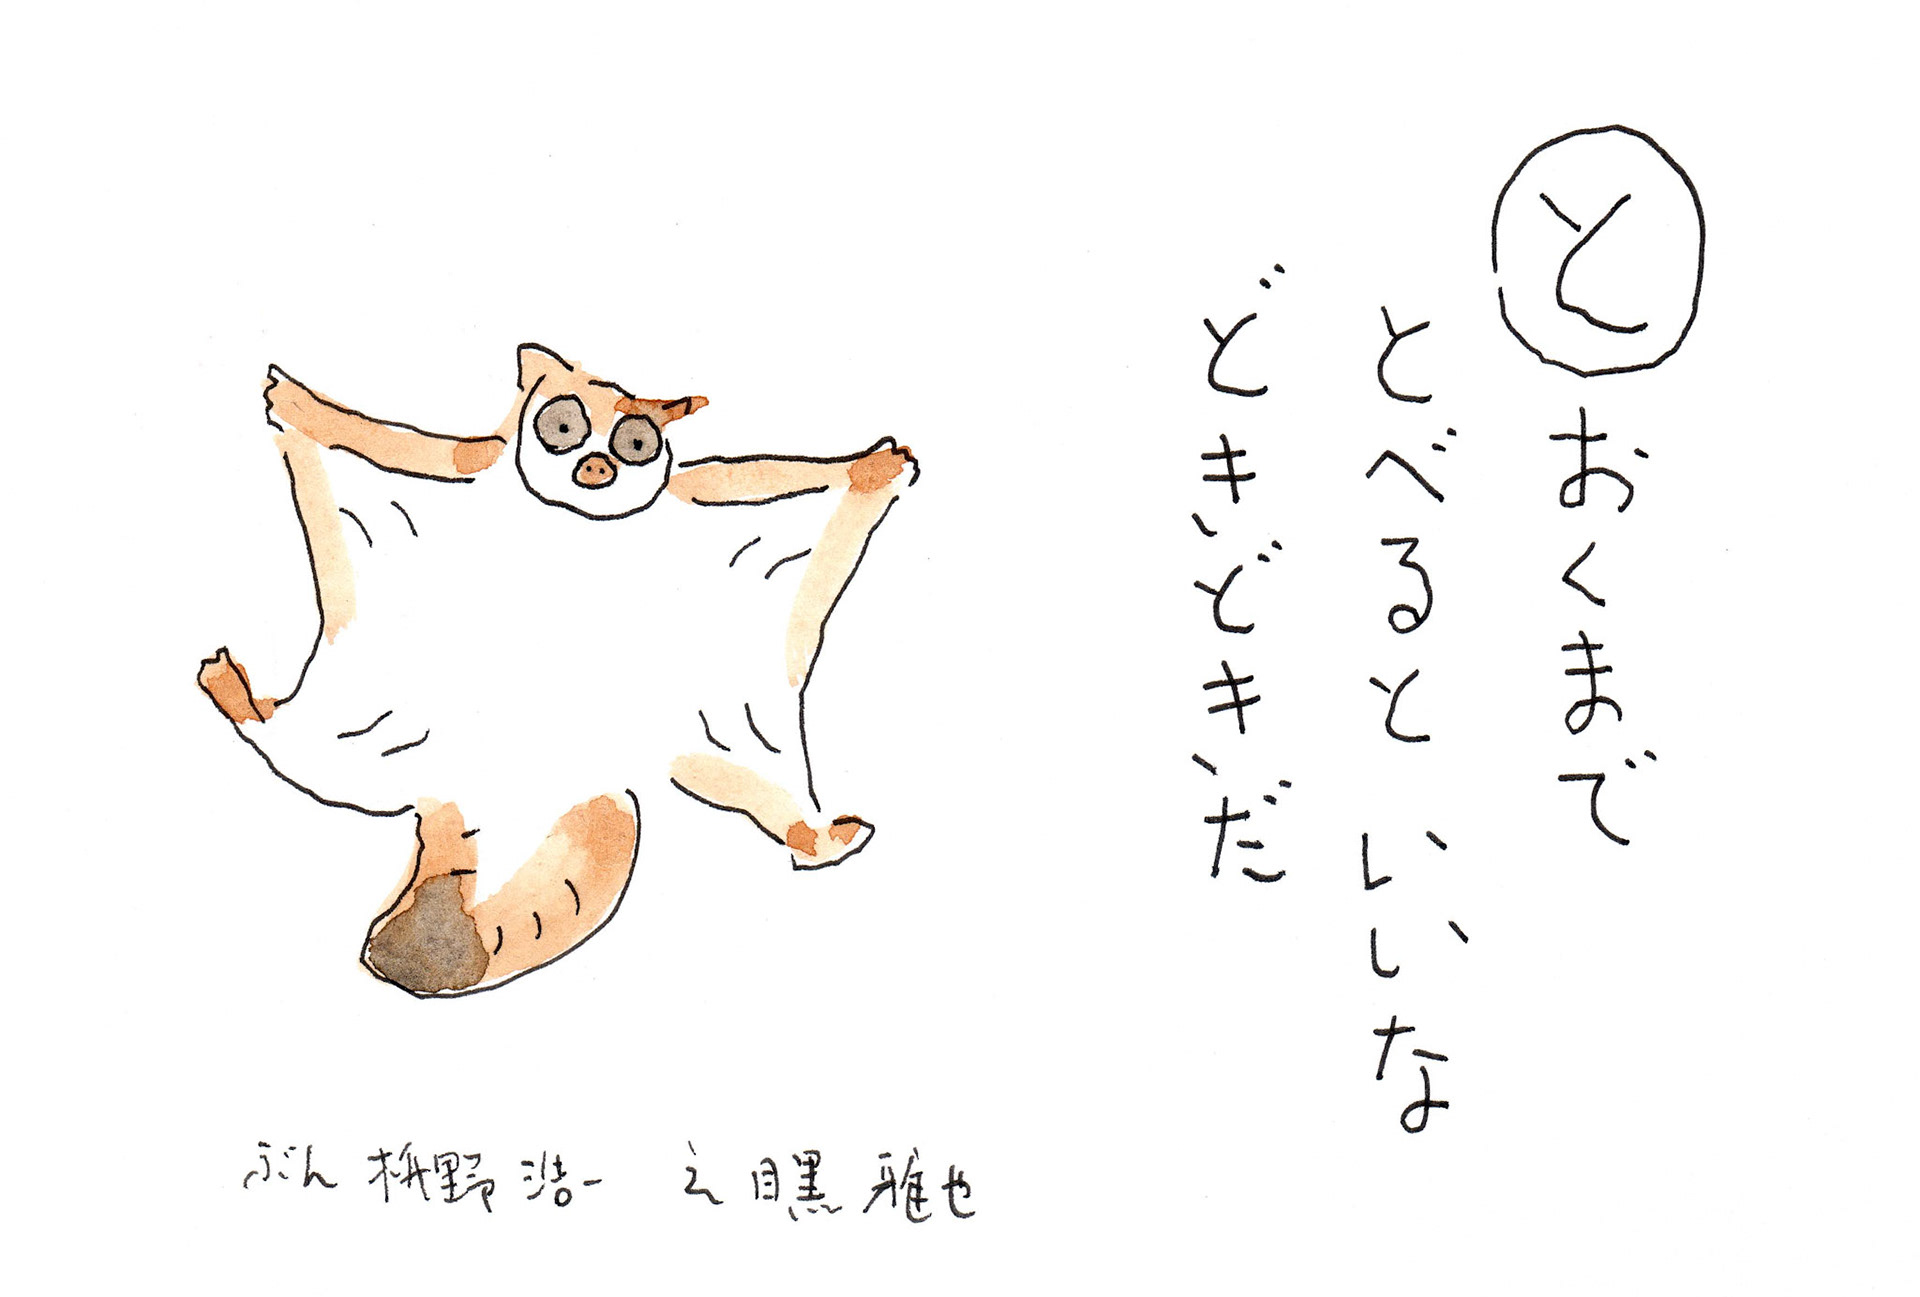 とおくまで
とべるといいな
どきどきだ
ぶん 枡野浩一 え 目黒雅也